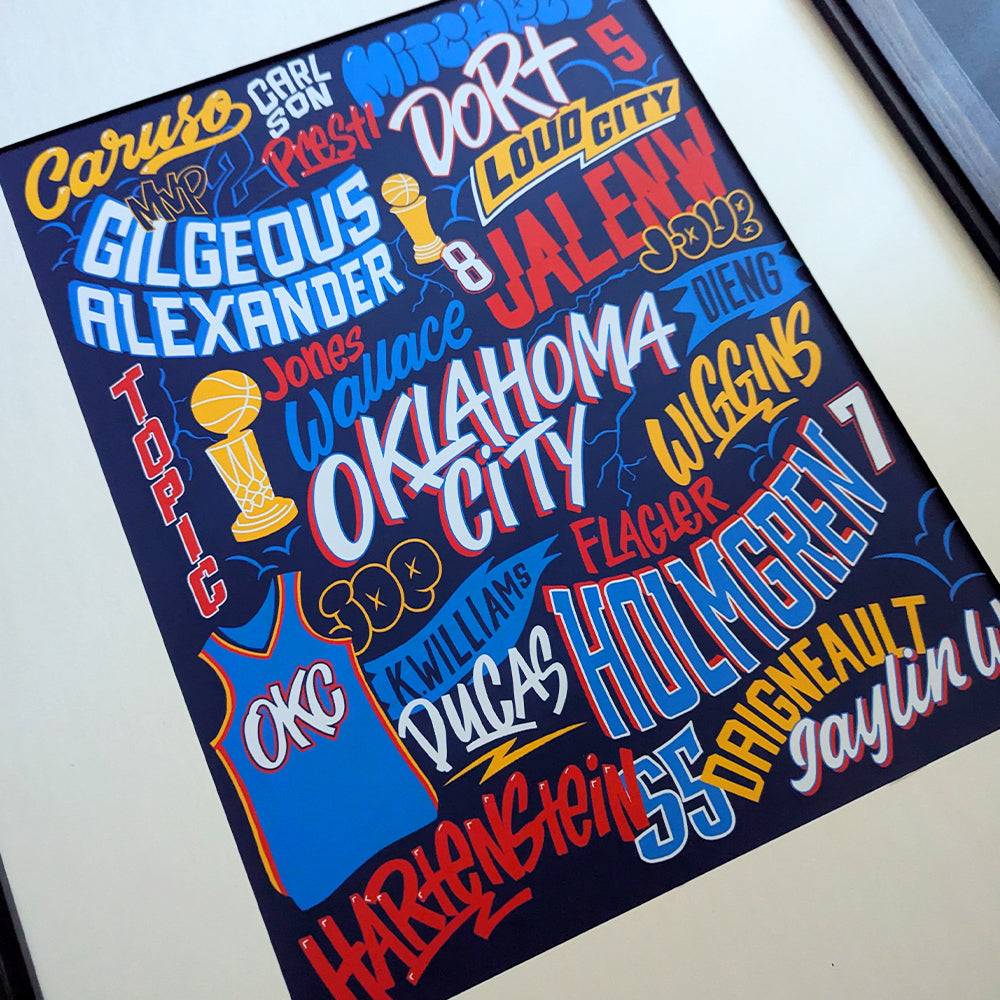 MITCHELL
CARL
SON
Caruso
Presti
DORT
5
LOUD CITY
MVP
2
GILGEOUS
ALEXANDER
8
JALENW
JDUB
DIENG
Jones
Wallace
OKLAHOMA
CITY
WIGGINS
TOPIC
7
FLAGLER
HOLMGREN
JOE
K.WILLIAMS
DUCAS
OKC
DAIGNEAULT
Jaylin W
HARTENSTEIN
55